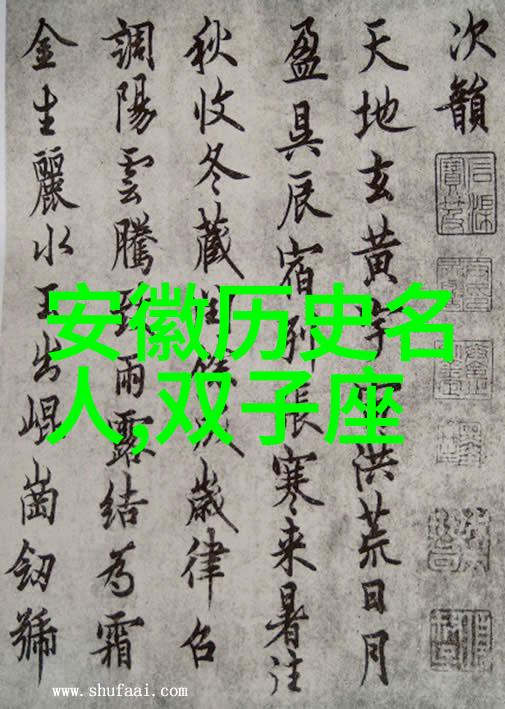 次韻
天地玄黃宇洪荒日月
盈昃辰宿列張寒来暑往
秋收冬藏歲律召
調陽雲騰致雨露結為霜
金生麗水玉出崐崗劒號
安徽历史名
人,双子座
www.shufaai.com